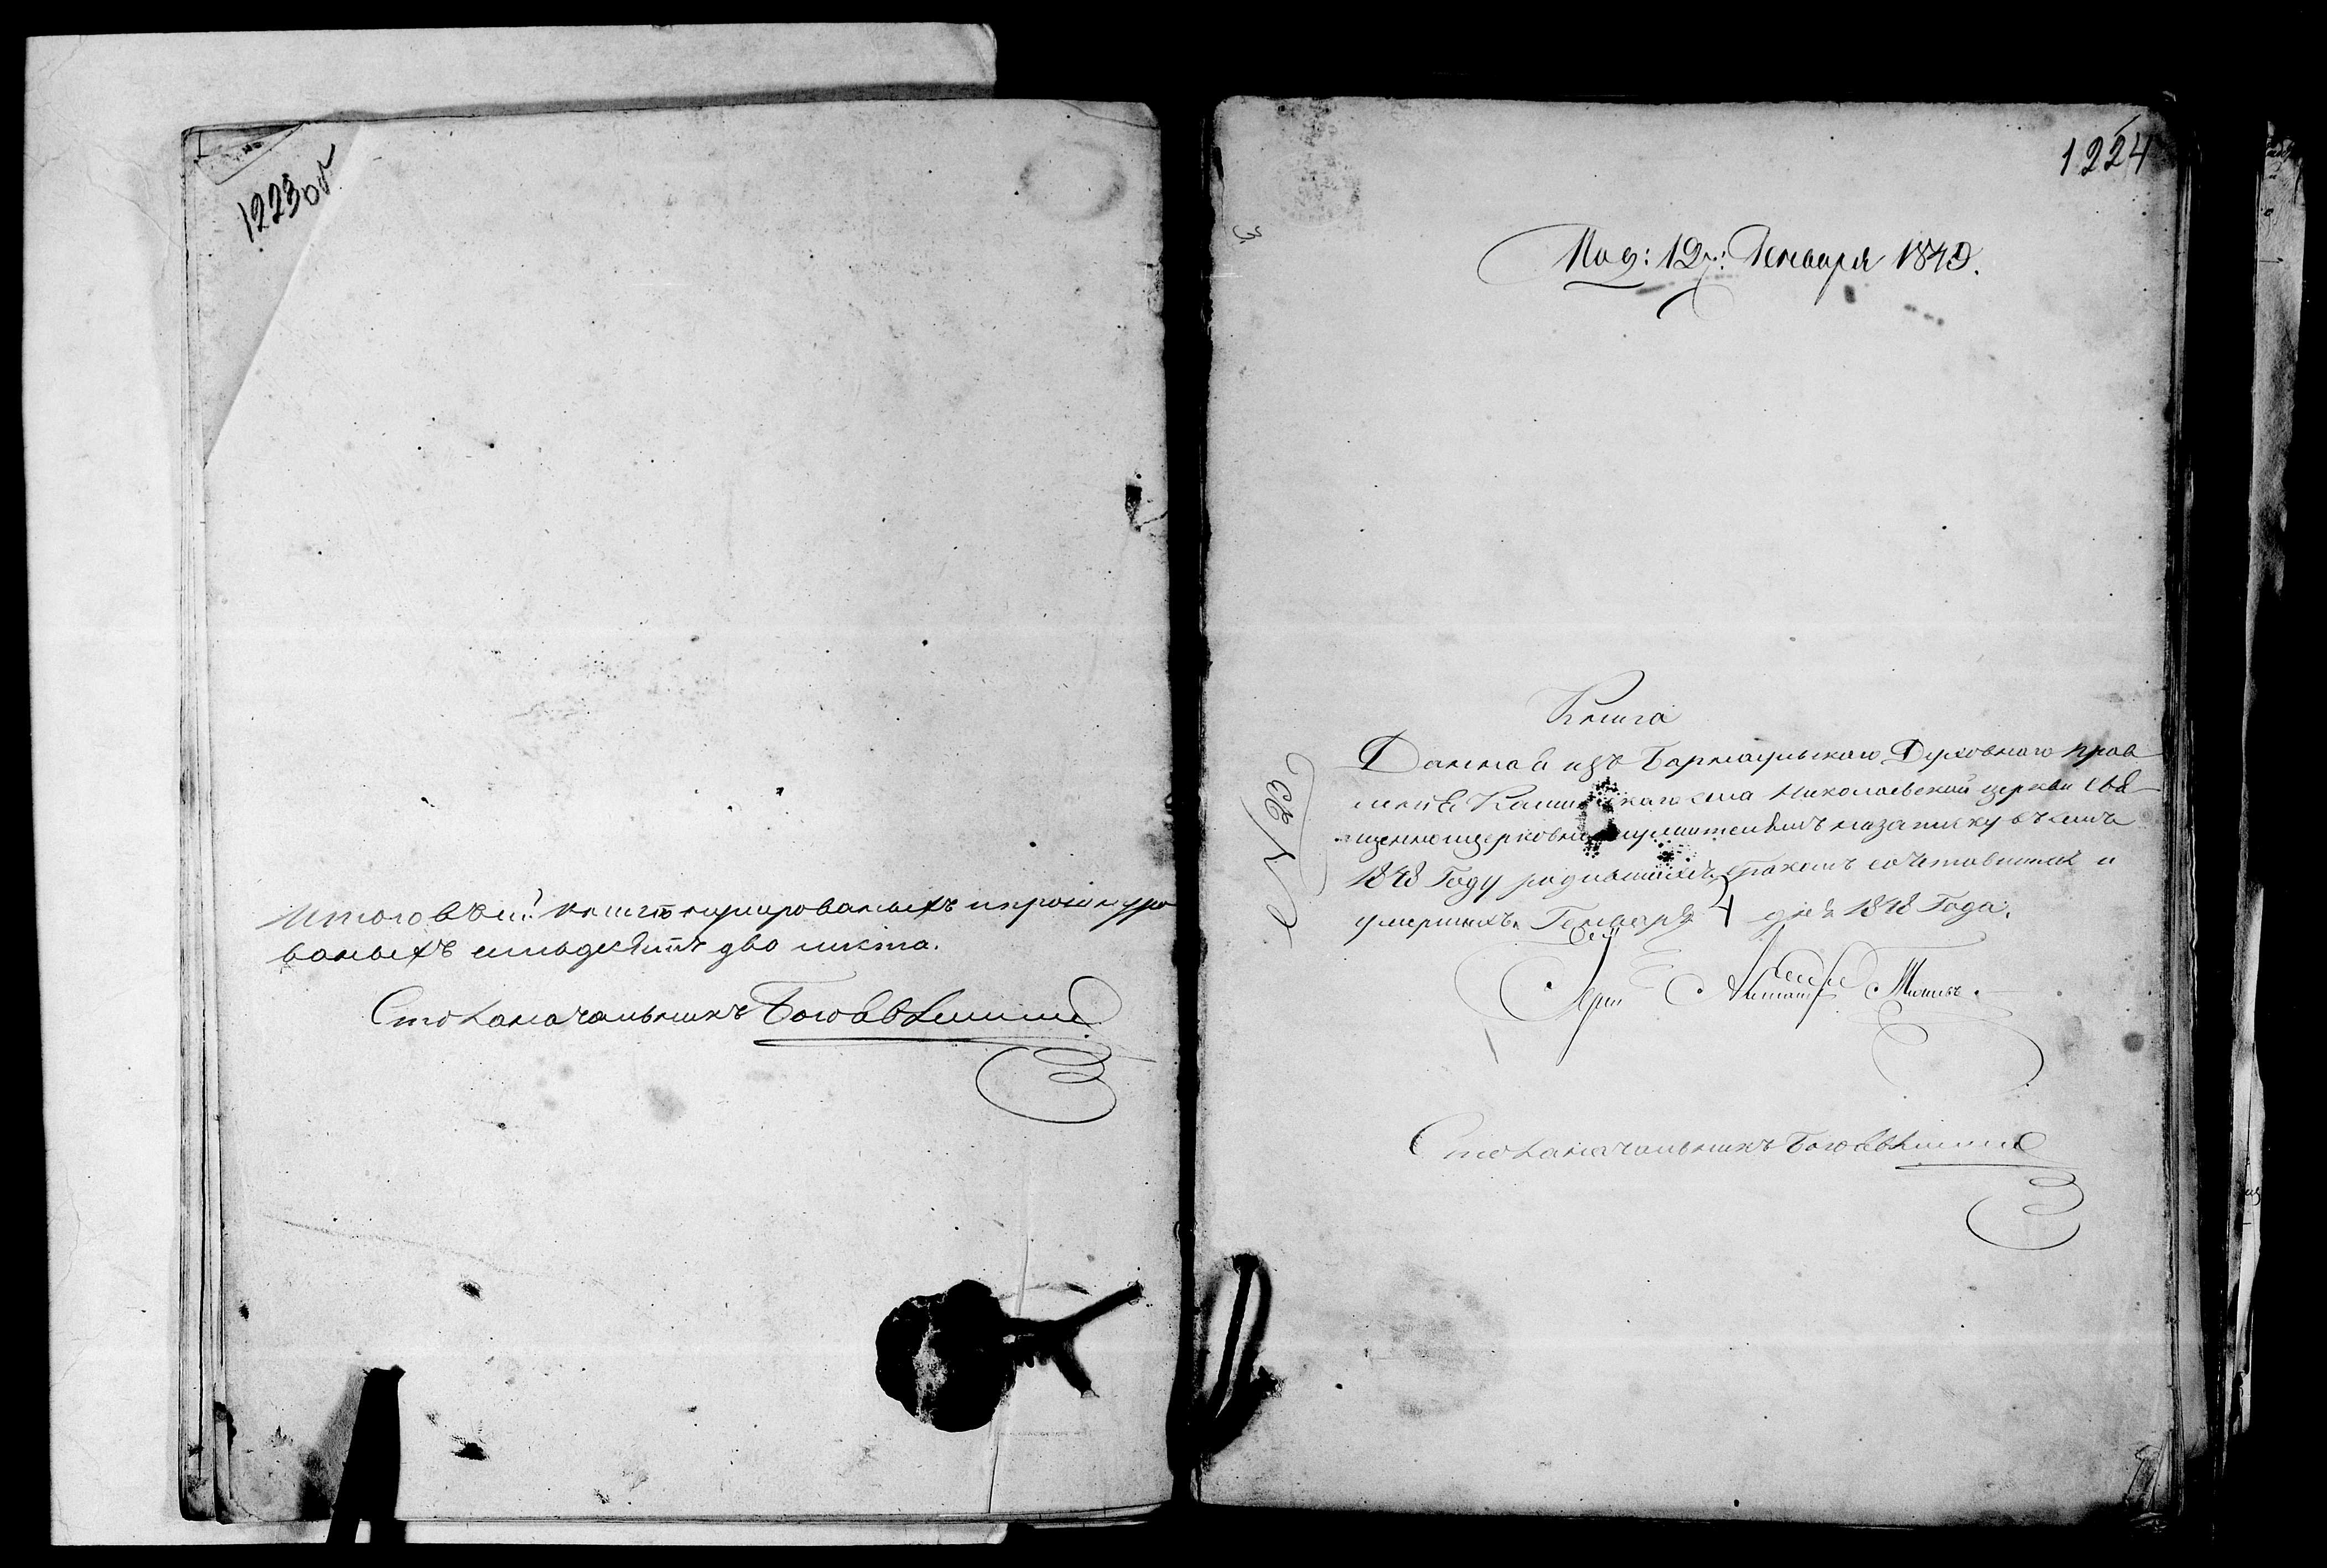 1223 об
Итого въ сей книге нумерованыхъ и прошнуро
ваныхъ семьдесятъ два листа.
Столоначальникъ Богоявленский
1224
Пол: 12 г: Генваря 1849.
№ 33
Книга
Данная изъ Барнаульскаго Духовного прав
ления Каши скаго села Николаевской церкви свя
щенноцерковнослужителямъ на записку въ семъ
1848 Году родившихся, бракомъ сочетавшихся и
умершихъ. Генваря 4 дня 1848 Года.
Столоначальникъ Богоявленский